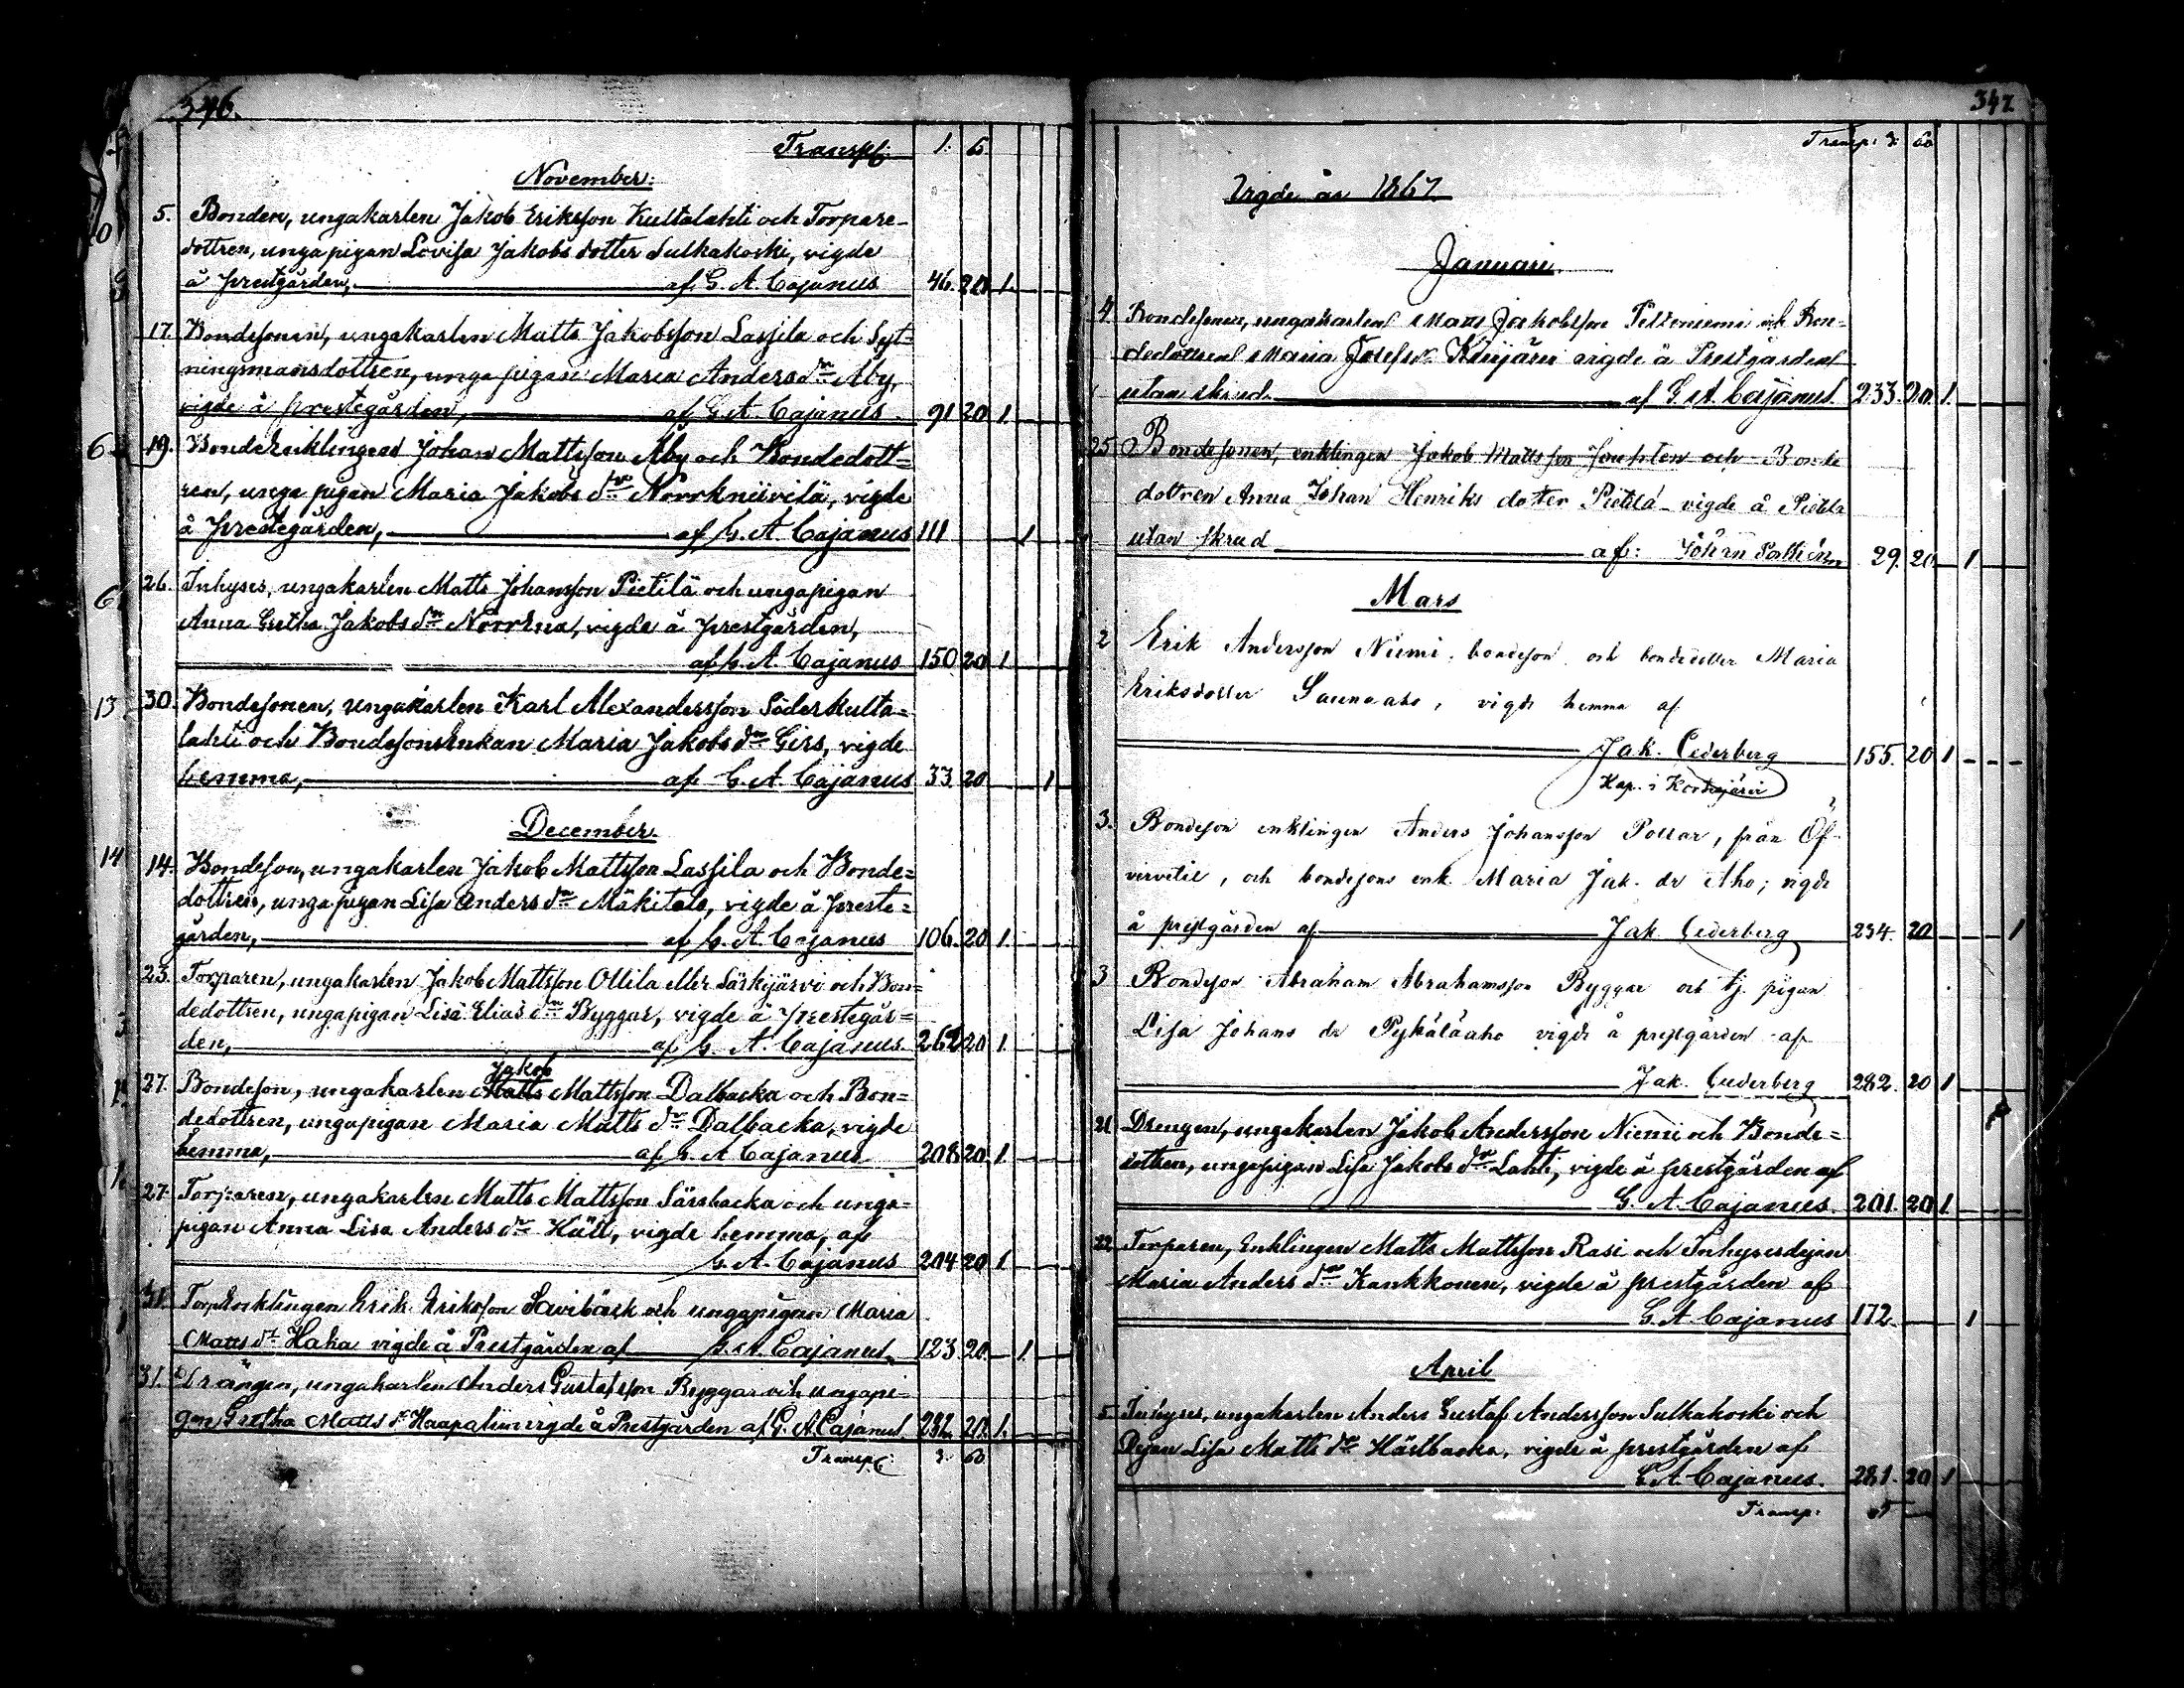 346.
Transp: 1. 6.
November:
5. Bonden, ungakarlen Jakob Eriksson Kultalahti och Torpare-
dottren, unga pigan Lovisa Jakobs dotter Sulkakoski, vigde
å prestgården, af G. A. Cajanus 46. 20 1.
17. Bondesonen, ungakarlen Matts Jakobsson Lassila och Syt-
ningsmansdottren, unga pigan Maria Anders dr Aby,
vigde å prestegården, af G. A. Cajanus 91 20 1
19. Bondeenklingen Johan Mattsson Aby och Bondedott-
ren, unga pigan Maria Jakobs dr Norrkniivilä, vigde
å prestegården, af G. A. Cajanus 111 1
26. Inhyses, ungakarlen Matts Johansson Pietilä och ungapigan
Anna Gretha Jakobs dr Norrena, vigde å prestgården,
af G. A. Cajanus 150 20 1
30. Bondesonen, ungakarlen Karl Alexandersson Söderkulta-
lahti och Bondesonsenkan Maria Jakobs dr Girs, vigde
hemma, af G. A. Cajanus 33 20 1
December.
14. Bondeson, ungakarlen Jakob Mattsson Lassila och Bonde-
dottren, unga pigan Lisa Anders dr Mäkitalo, vigde å preste-
gården, af G. A. Cajanus 106. 20 1.
23. Torparen, ungakarlen Jakob Mattsson Ollila eller Särkijärvi och Bon-
dedottren, ungapigan Lisa Elias dr Byggar, vigde å prestegår-
den, af G. A. Cajanus 262 20 1.
Jakob
27. Bondeson, ungakarlen Matts Mattsson Dalbacka och Bon-
dedottren, ungapigan Maria Matts dr Dalbacka, vigde
hemma, af G. A. Cajanus 208 20. 1.
27. Torparen, ungakarlen Matts Mattsson Särsbacka och unga-
pigan Anna Lisa Anders dr Hält, vigde hemma, af
G. A. Cajanus 204 20 1
31. Torp.Enklingen Erik Eriksson Savibäck och ungapigan Maria
Matts dr Haka vigde å Prestgården af G. A. Cajanus 123 20. 1.
31. Drängen, ungakarlen Anders Gustafsson Byggar och ungapi-
gan Gretha Matts dr Haapalum vigde å Prestgården af G. A. Cajanus. 282. 20. 1.
Transp: 3. 60
347.
Transp: 3. 60
Vigde år 1867.
Januari.
4 Bondesonen, ungakarlen Matts Jakobsson Peltoniemi och Bon-
dedottren Maria Josefs dr vigde å Prestgården
utan skrud af G. A. Cajanus 233. 20. 1.
25 Bondesonen, enklingen Jakob Mattsson och Bonde
dottren Anna Johan Henriks dotter Pietilä vigde å Pietilä
utan skrud af: Johan 29. 20 1
Mars
2 Erik Andersson Niemi, bondeson, och bondedotter Maria
Eriksdotter Saunaaho, vigde hemma af
Jak. Cederberg 155. 20 1
Kap. i Kortesjärvi
3. Bondeson enklingen Anders Johansson Pollar, från Öf-
virvetil, och bondesons enk. Maria Jak. dr Aho; vigde
å prestgården af Jak. Cederberg 234. 20 1
3 Bondeson Abraham Abrahamsson Byggar och tj. pigan
Lisa Johans dr Pykäläaho vigde å prestgården af
Jak. Cederberg 282. 20 1
21 Drengen, ungakarlen Jakob Andersson Niemi och Bonde-
dottren, ungapigan Lisa Jakobs dr Lahti, vigde å prestgården af
G. A. Cajanus. 201. 20 1
22 Torparen, Enklingen Matts Mattsson Rasi och Inhysesdejan
Maria Anders dr Kankkonen, vigde å prestgården af
G. A. Cajanus 172. 1
April
5 Inhyses, ungakarlen Anders Gustaf Andersson Sulkakoski och
Dejan Lisa Matts dr Hästbacka, vigde å prestgården af
G. A. Cajanus. 281. 20 1
Transp: